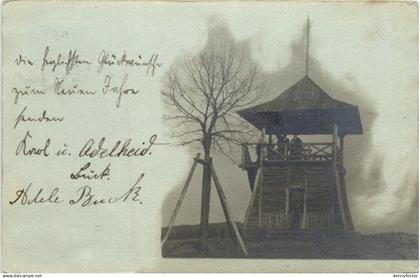 die herzlichsten Glückwünsche
zum Neuen Jahre
senden
Karl u. Adelheid.
Buck.
Adele Buck.
www.delcampe.net
kennyfoster